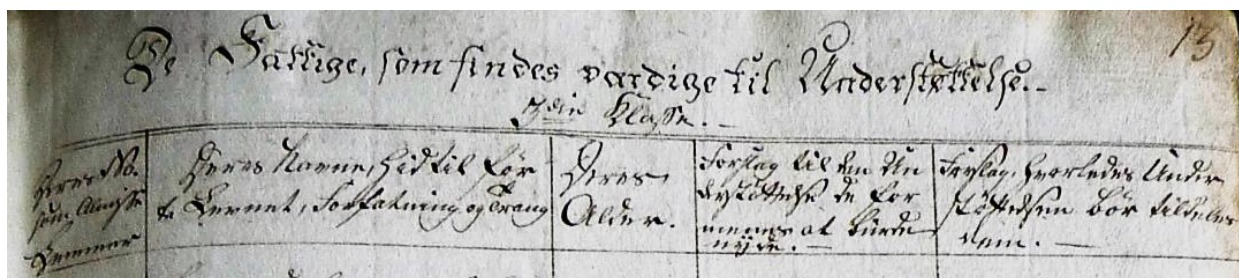 13
De Fattige, som findes værdige til Understøttelse.-
Klasse.-
Deres No.
som Almisse
Lemmer
Deres Navne, hidtil før
te Levnet, Forfatning og Trang
Deres
Alder.
Forslag til den Un
derstøttelse de for
menes at burde
nyde.-
Forslag, hvorledes Under
støttelsen bør tildeles
dem.-